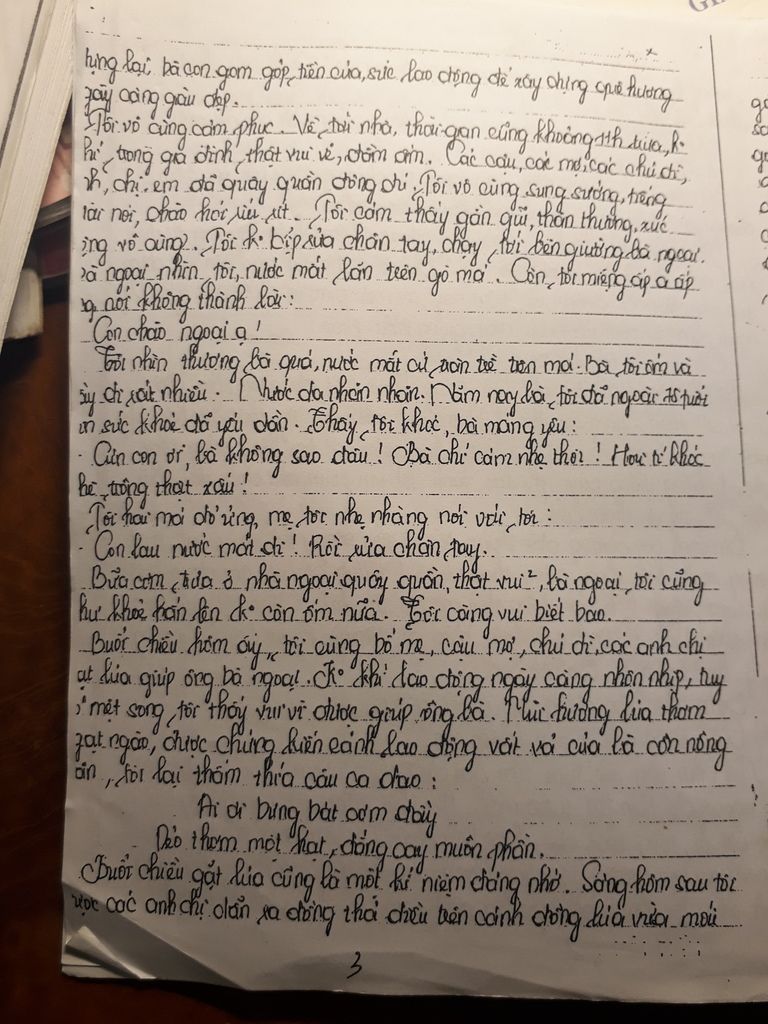 lại, bà con gom góp, tiền của, sức lao động để xây dựng quê hương
ngày càng giàu đẹp.
Tôi vô cùng cảm phục. Về, tới nhà, thời gian cũng khoảng 11h trưa, k°
khí, trong gia đình, thật vui vẻ, đầm ấm. Các cậu, các mợ, các chú dì,
anh, chị, em đã quây quần đông đủ. Tôi vô cùng sung sướng, tiếng
cười nói, chào hỏi ríu rít. Tôi cảm thấy gần gũi, thân thương, xúc
động vô cùng. Tôi k° kịp rửa chân tay, chạy, tới bên giường bà ngoại.
Bà ngoại nhìn, tôi, nước mắt lăn trên gò má. Còn, tôi miệng ấp a ấp
úng nói không thành lời:
Con chào ngoại ạ!
Tôi nhìn thương bà quá, nước mắt cứ tràn trề trên má. Bà, tôi ốm và
gầy đi rất nhiều. Nước da nhăn nhăn. Năm nay bà, tôi đã ngoài tuổi
nên sức khoẻ đã yếu dần. Thấy, tôi khóc, bà mắng yêu:
- Cún con ơi, bà không sao đâu! Bà chỉ cảm nhẹ thôi! khóc
nhè, trông thật xấu!
Tôi hai má đỏ ửng, mẹ, tôi nhẹ nhàng nói với, tôi:
- Con lau nước mắt đi! Rồi rửa chân tay.
Bữa cơm, trưa ở nhà ngoại quây quần, thật vui², bà ngoại, tôi cũng
như khoẻ hẳn lên k° còn ốm nữa. Tôi càng vui biết bao.
Buổi chiều hôm ấy, tôi cùng bố mẹ, cậu mợ, chú dì, các anh chị
gặt lúa giúp ông bà ngoại. K° khí lao động ngày càng nhộn nhịp, tuy
mệt song, tôi thấy vui vì được giúp ông bà. Mùi hương lúa thơm
ngạt ngào, được chứng kiến cảnh lao động vất vả của bà con nông
dân, tôi lại thấm thía câu ca dao:
Ai ơi bưng bát cơm đầy
Dẻo thơm một hạt, đắng cay muôn phần.
Buổi chiều gặt lúa cũng là một kỉ niệm đáng nhớ. Sáng hôm sau tôi
được các anh chị dẫn ra đồng thả diều trên cánh đồng lúa vừa mới
3